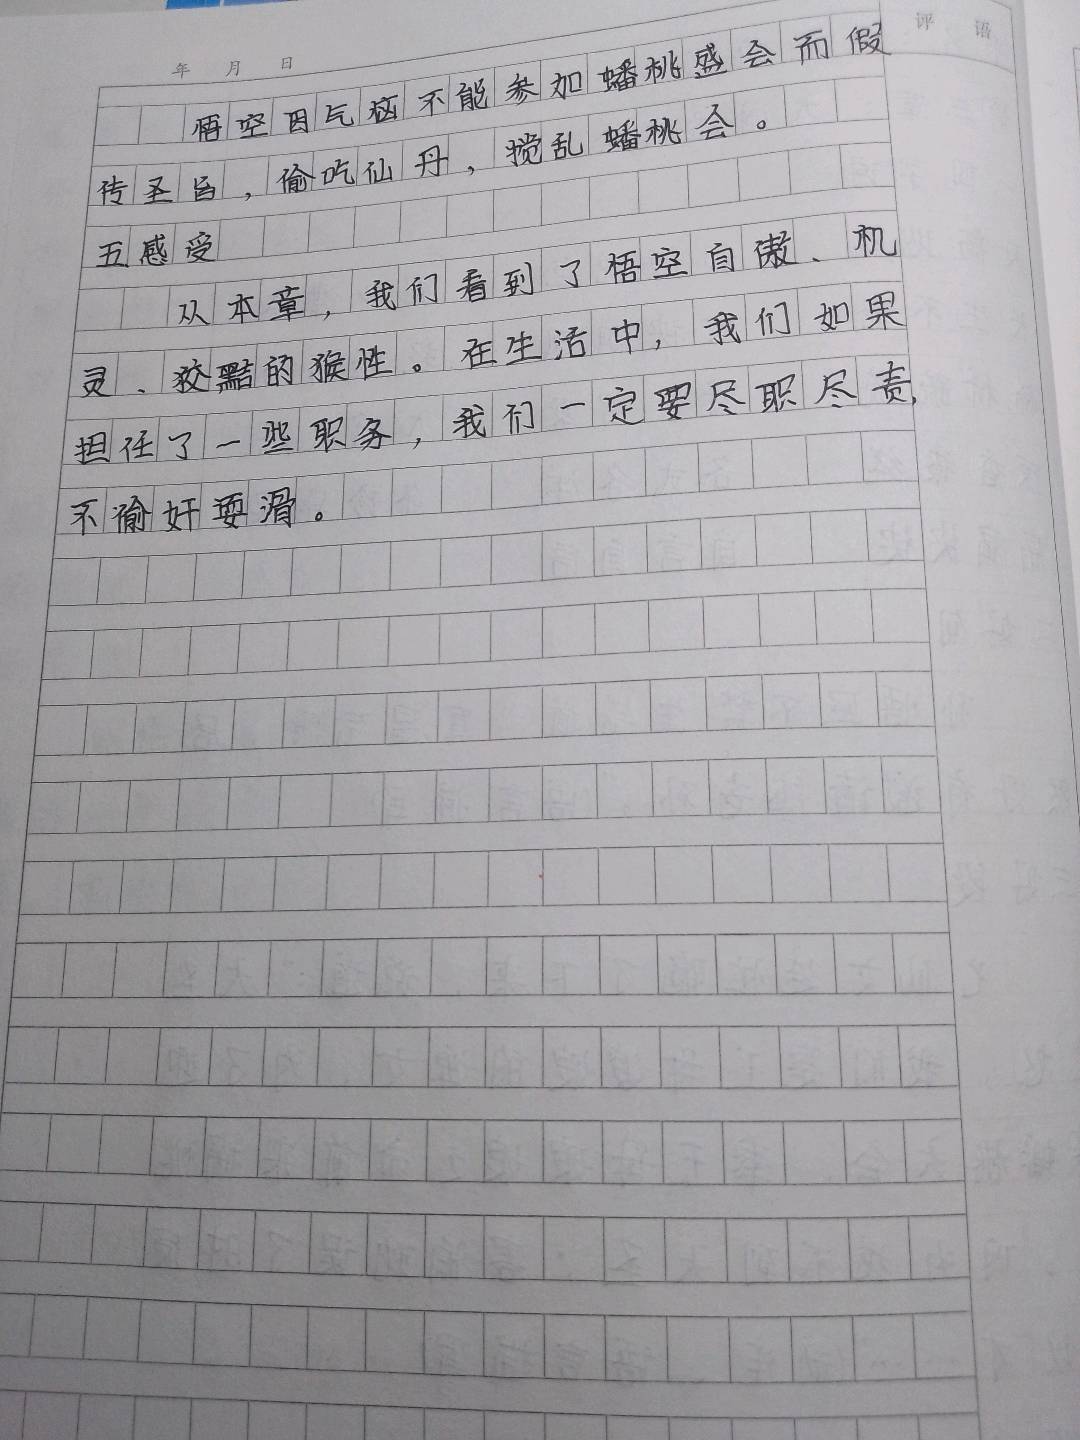 年 月 日
评 语
悟空因气恼不能参加蟠桃盛会而假
传圣旨，偷吃仙丹，搅乱蟠桃会。
五感受
从本章，我们看到了悟空自傲、机
灵、狡黠的猴性。在生活中，我们如果
担任了一些职务，我们一定要尽职尽责，
不偷奸耍滑。